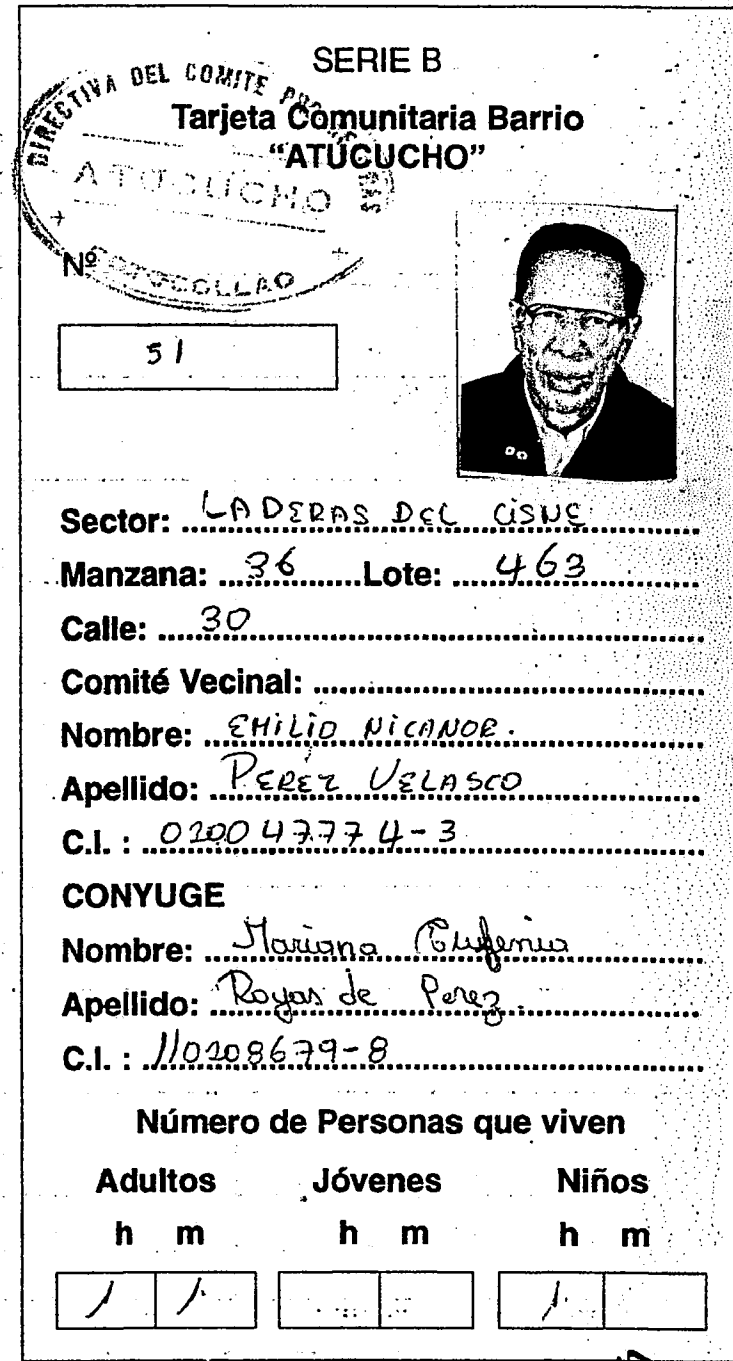 SERIE B
DIRECTIVA DEL COMITE
Tarjeta Comunitaria Barrio
"ATUCUCHO"
ATUCUCHO
Nº
51
Sector: LADERAS DEL CISNE
Manzana: 36 Lote: 463
Calle: 30
Comité Vecinal:
Nombre: EMILIO NICANOR.
Apellido: PEREZ VELASCO
C.I. : 020047774-3
CONYUGE
Nombre: Mariana Eufemia
Apellido: Royas de Perez
C.I. : 110208679-8
Número de Personas que viven
Adultos Jóvenes Niños
h m h m h m
1 1 1